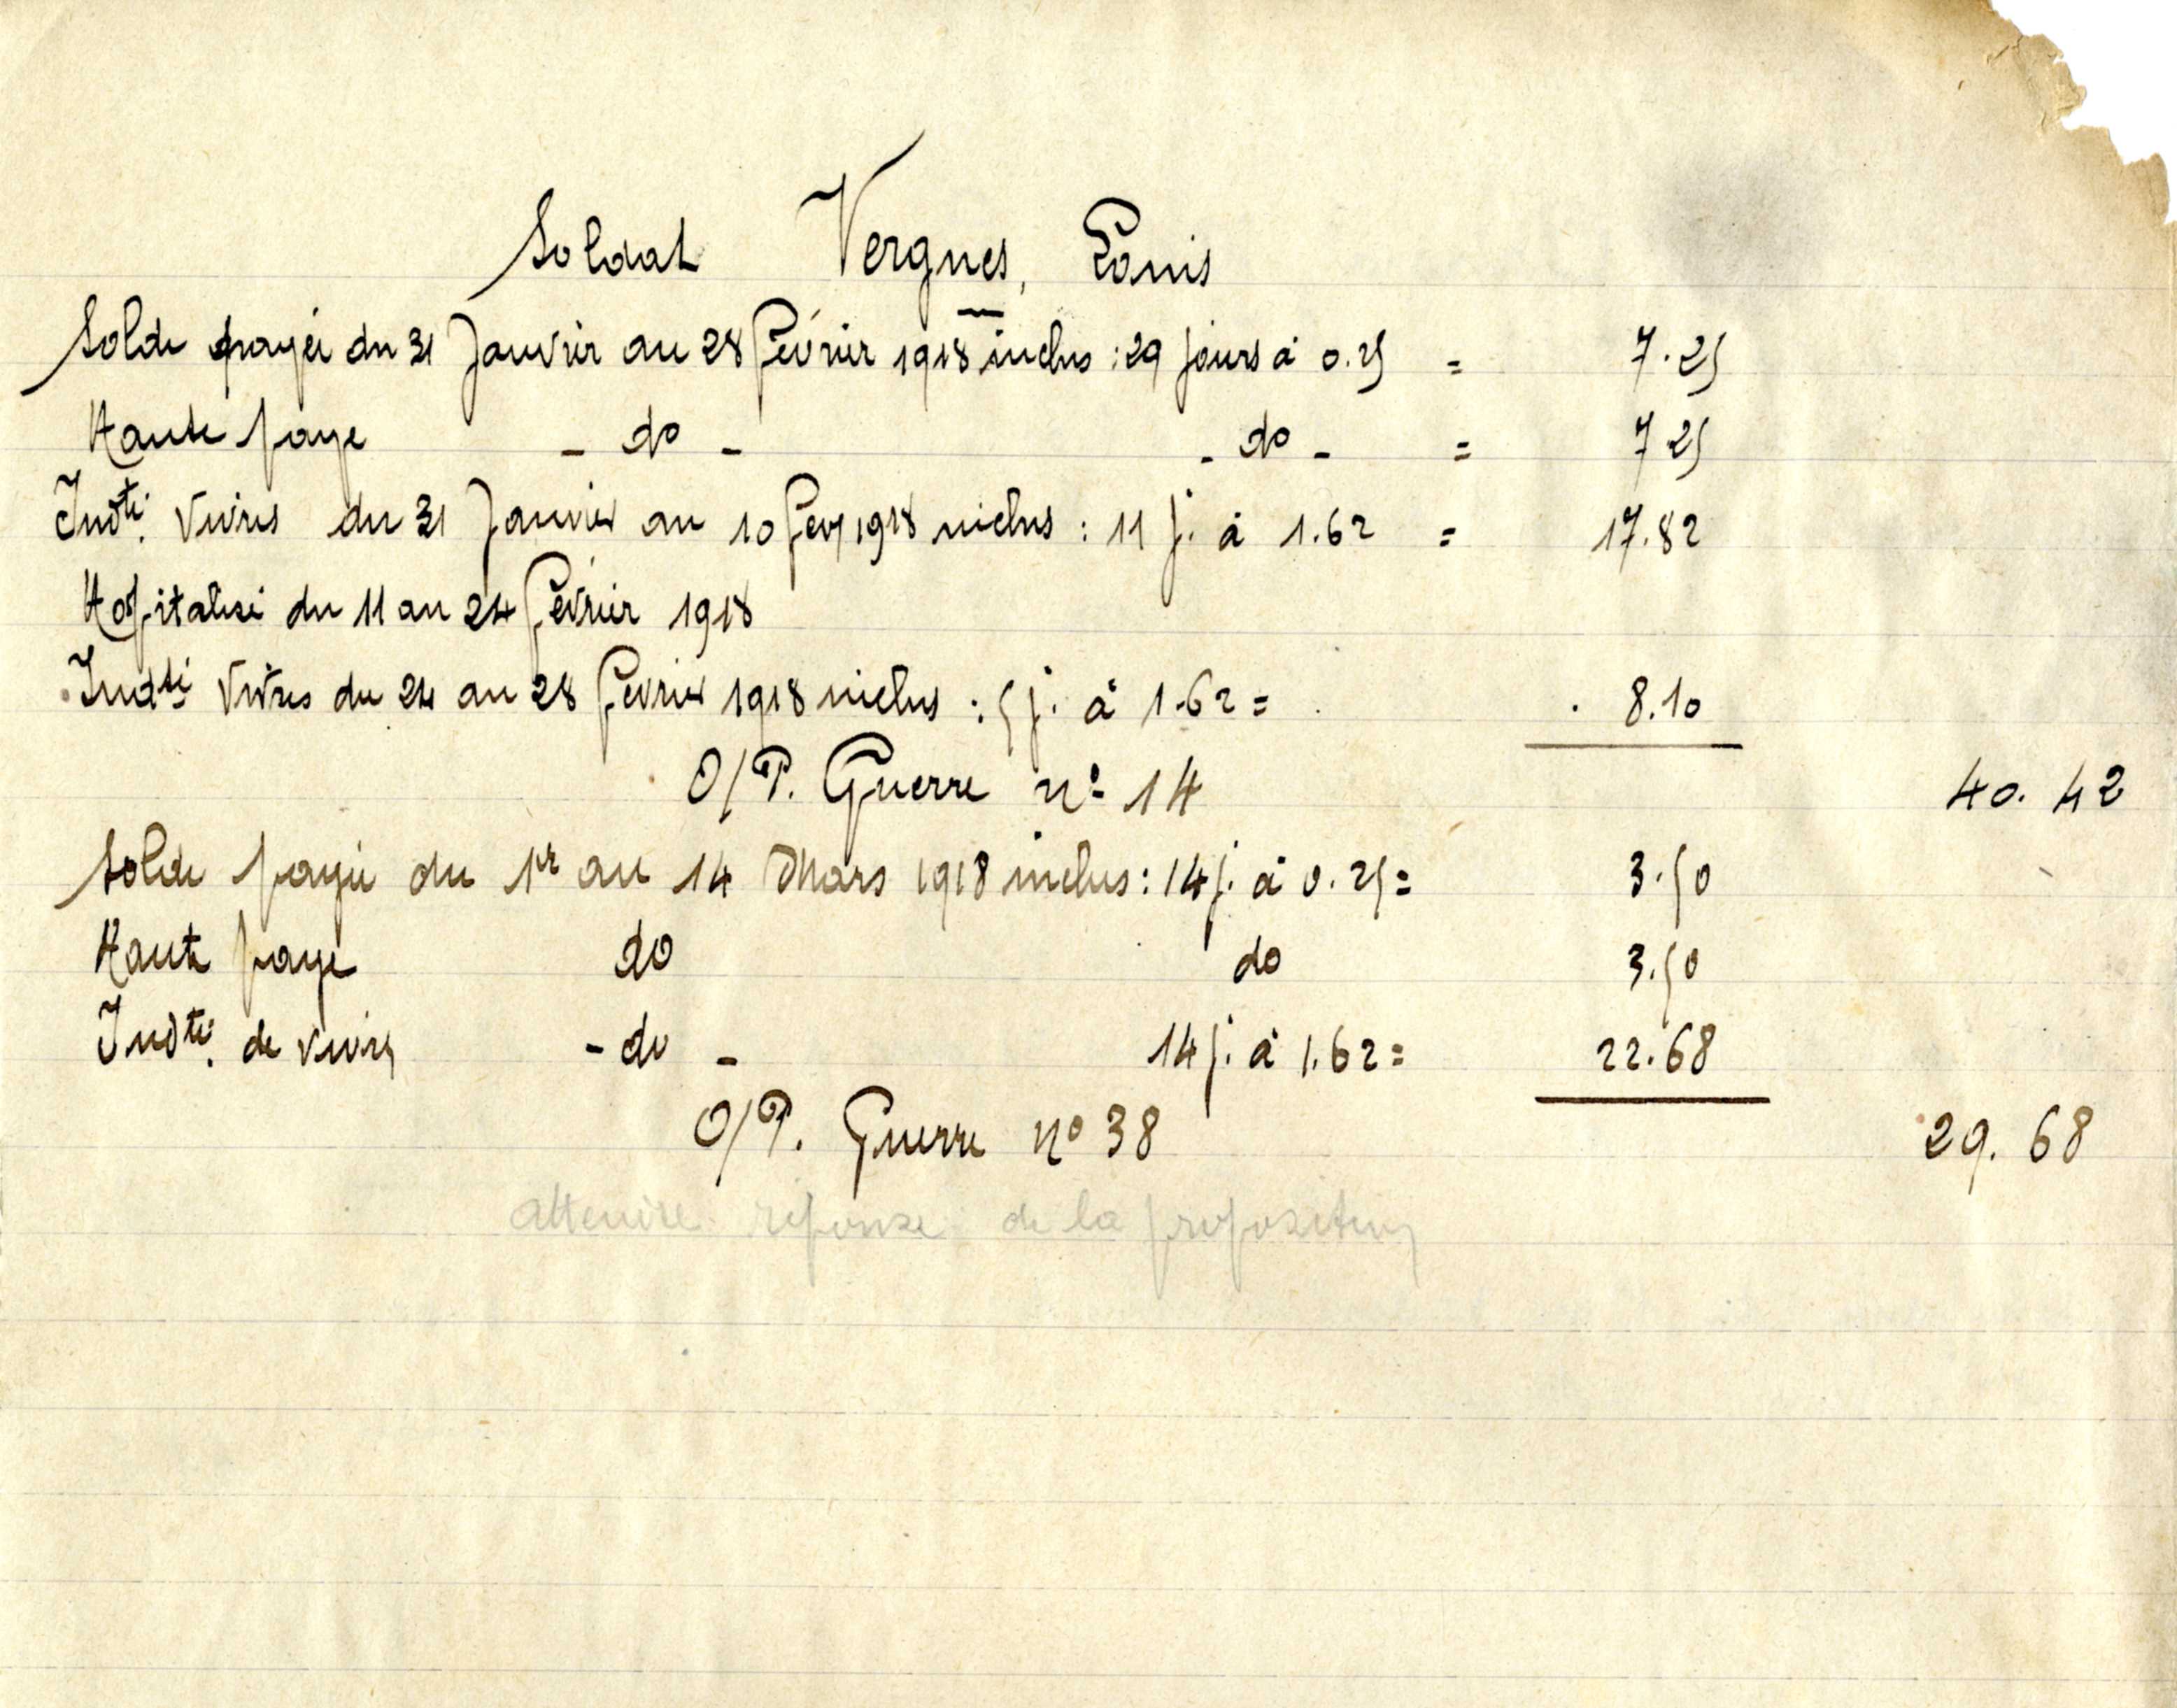 Soldat Vergnes, Louis
Solde payée du 31 Janvier au 28 Février 1918 inclus : 29 jours à 0.25 = 7.25
Haute paye - do - - do - = 7 25
Indté. vivres du 31 Janvier au 10 fév 1918 inclus : 11 j. à 1.62 = 17.82
Hospitalisé du 11 au 24 Février 1918
Indté vivres du 24 au 28 février 1918 inclus : 5 j. à 1.62 = 8.10
O/P. Guerre n° 14 40.42
Solde payée du 1er au 14 Mars 1918 inclus : 14 j. à 0.25 = 3.50
Haute paye do do 3.50
Indté. de vivres - do - 14 j. à 1.62 = 22.68
O/P. Guerre n° 38 29.68
attendre réponse de la proposition